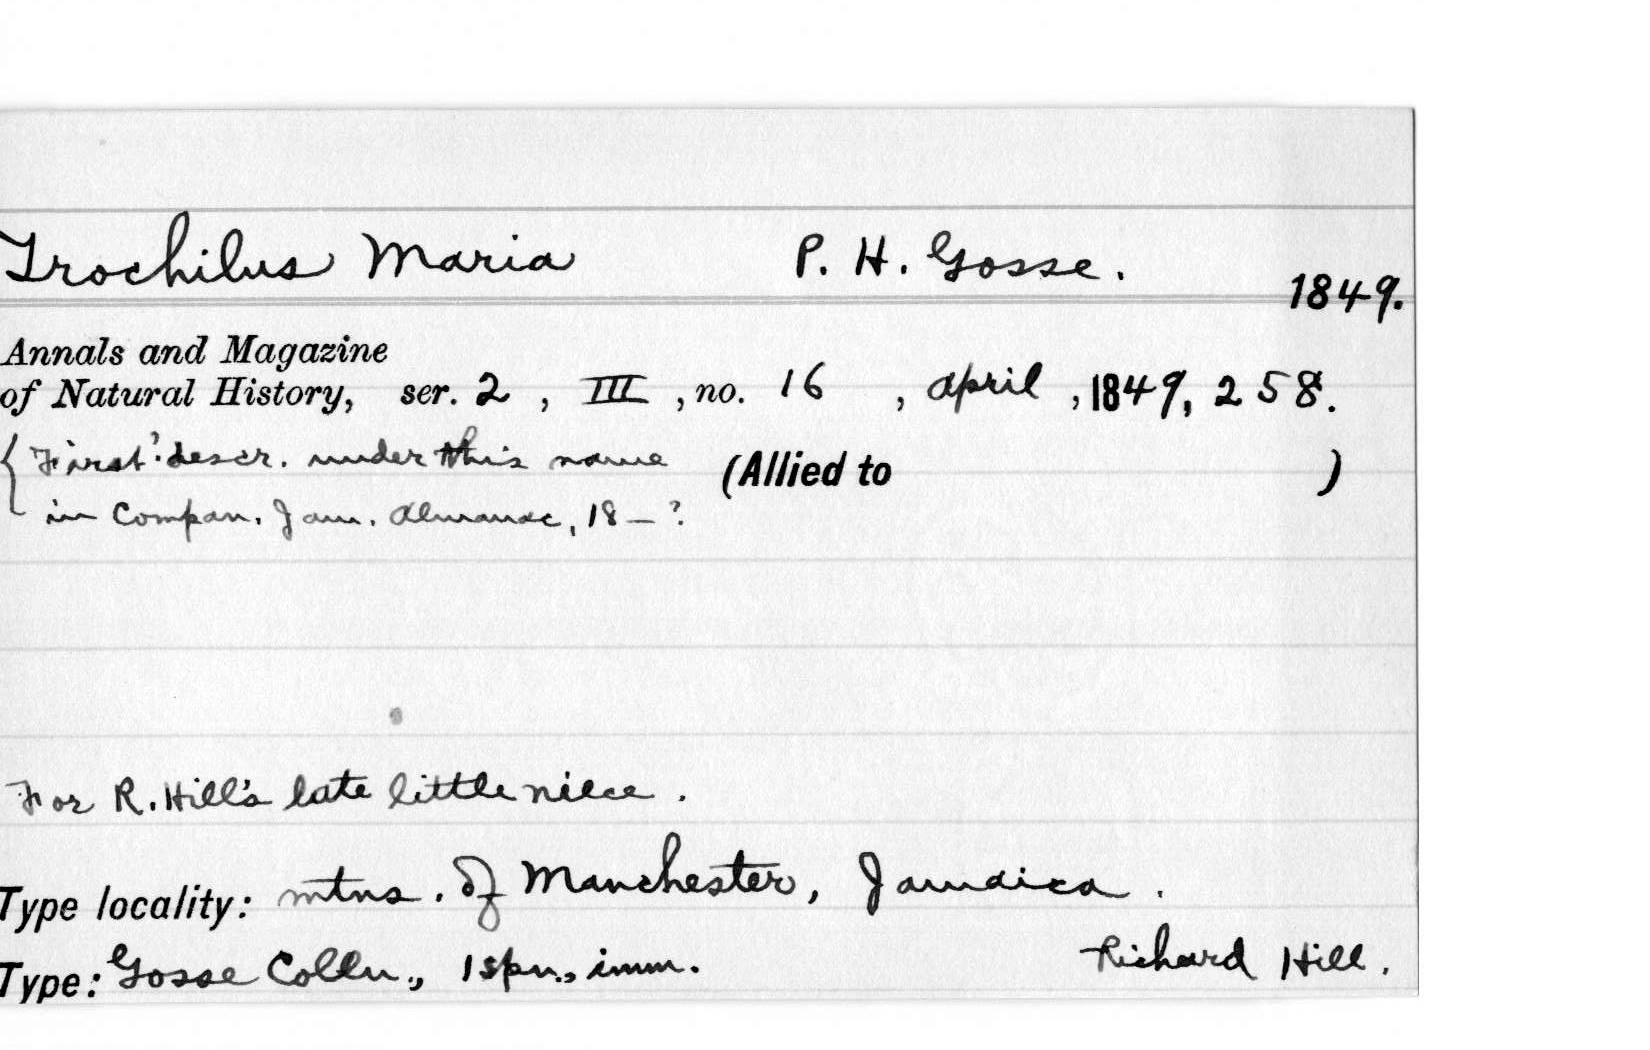 Trochilus Maria P. H. Gosse.
1849.
Annals and Magazine
of Natural History, ser. 2, III, no. 16, April, 1849, 258.
{First? descr. under this name (Allied to )
in Compan. Jam. Almanac, 18—?
For R. Hill's late little niece.
Type locality: mtns. of Manchester, Jamaica.
Type: Gosse Colln., 1 spn., imm. Richard Hill.